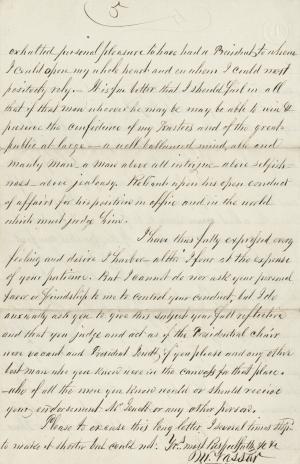 5
exhalted personal pleasure to have had a President to whom
I could open my whole heart and on whom I could most
positively rely. It is far better that I should feel in all
that if that man whoever he may be may be able to win &
preserve the confidence of my Trustees and of the great
public at large — a well ballanced mind, able and
manly man — a man above all intrigue — above selfish-
ness — above jealousy. Reliant upon his open conduct
of affairs for his position in office and in the world
which must judge him.
I have thus fully expressed every
feeling and desire I harbor — altho' I fear at the expense
of your patience. But I cannot do nor ask your personal
favor or friendship to me to control your conduct, but I do
anxiously ask you to give this subject your full reflection
and that you judge and act as if the Presidential Chair
were vacant and President Jewett, if you please and any other
best man who you know were in the canvass for that place.
who of all the men you know would or should receive
your endorsement Mr. Jewett or any other person.
Please to excuse this long letter I several times
to make it shorter but could not. Yrs. most Respectfully yore
M. Vassar